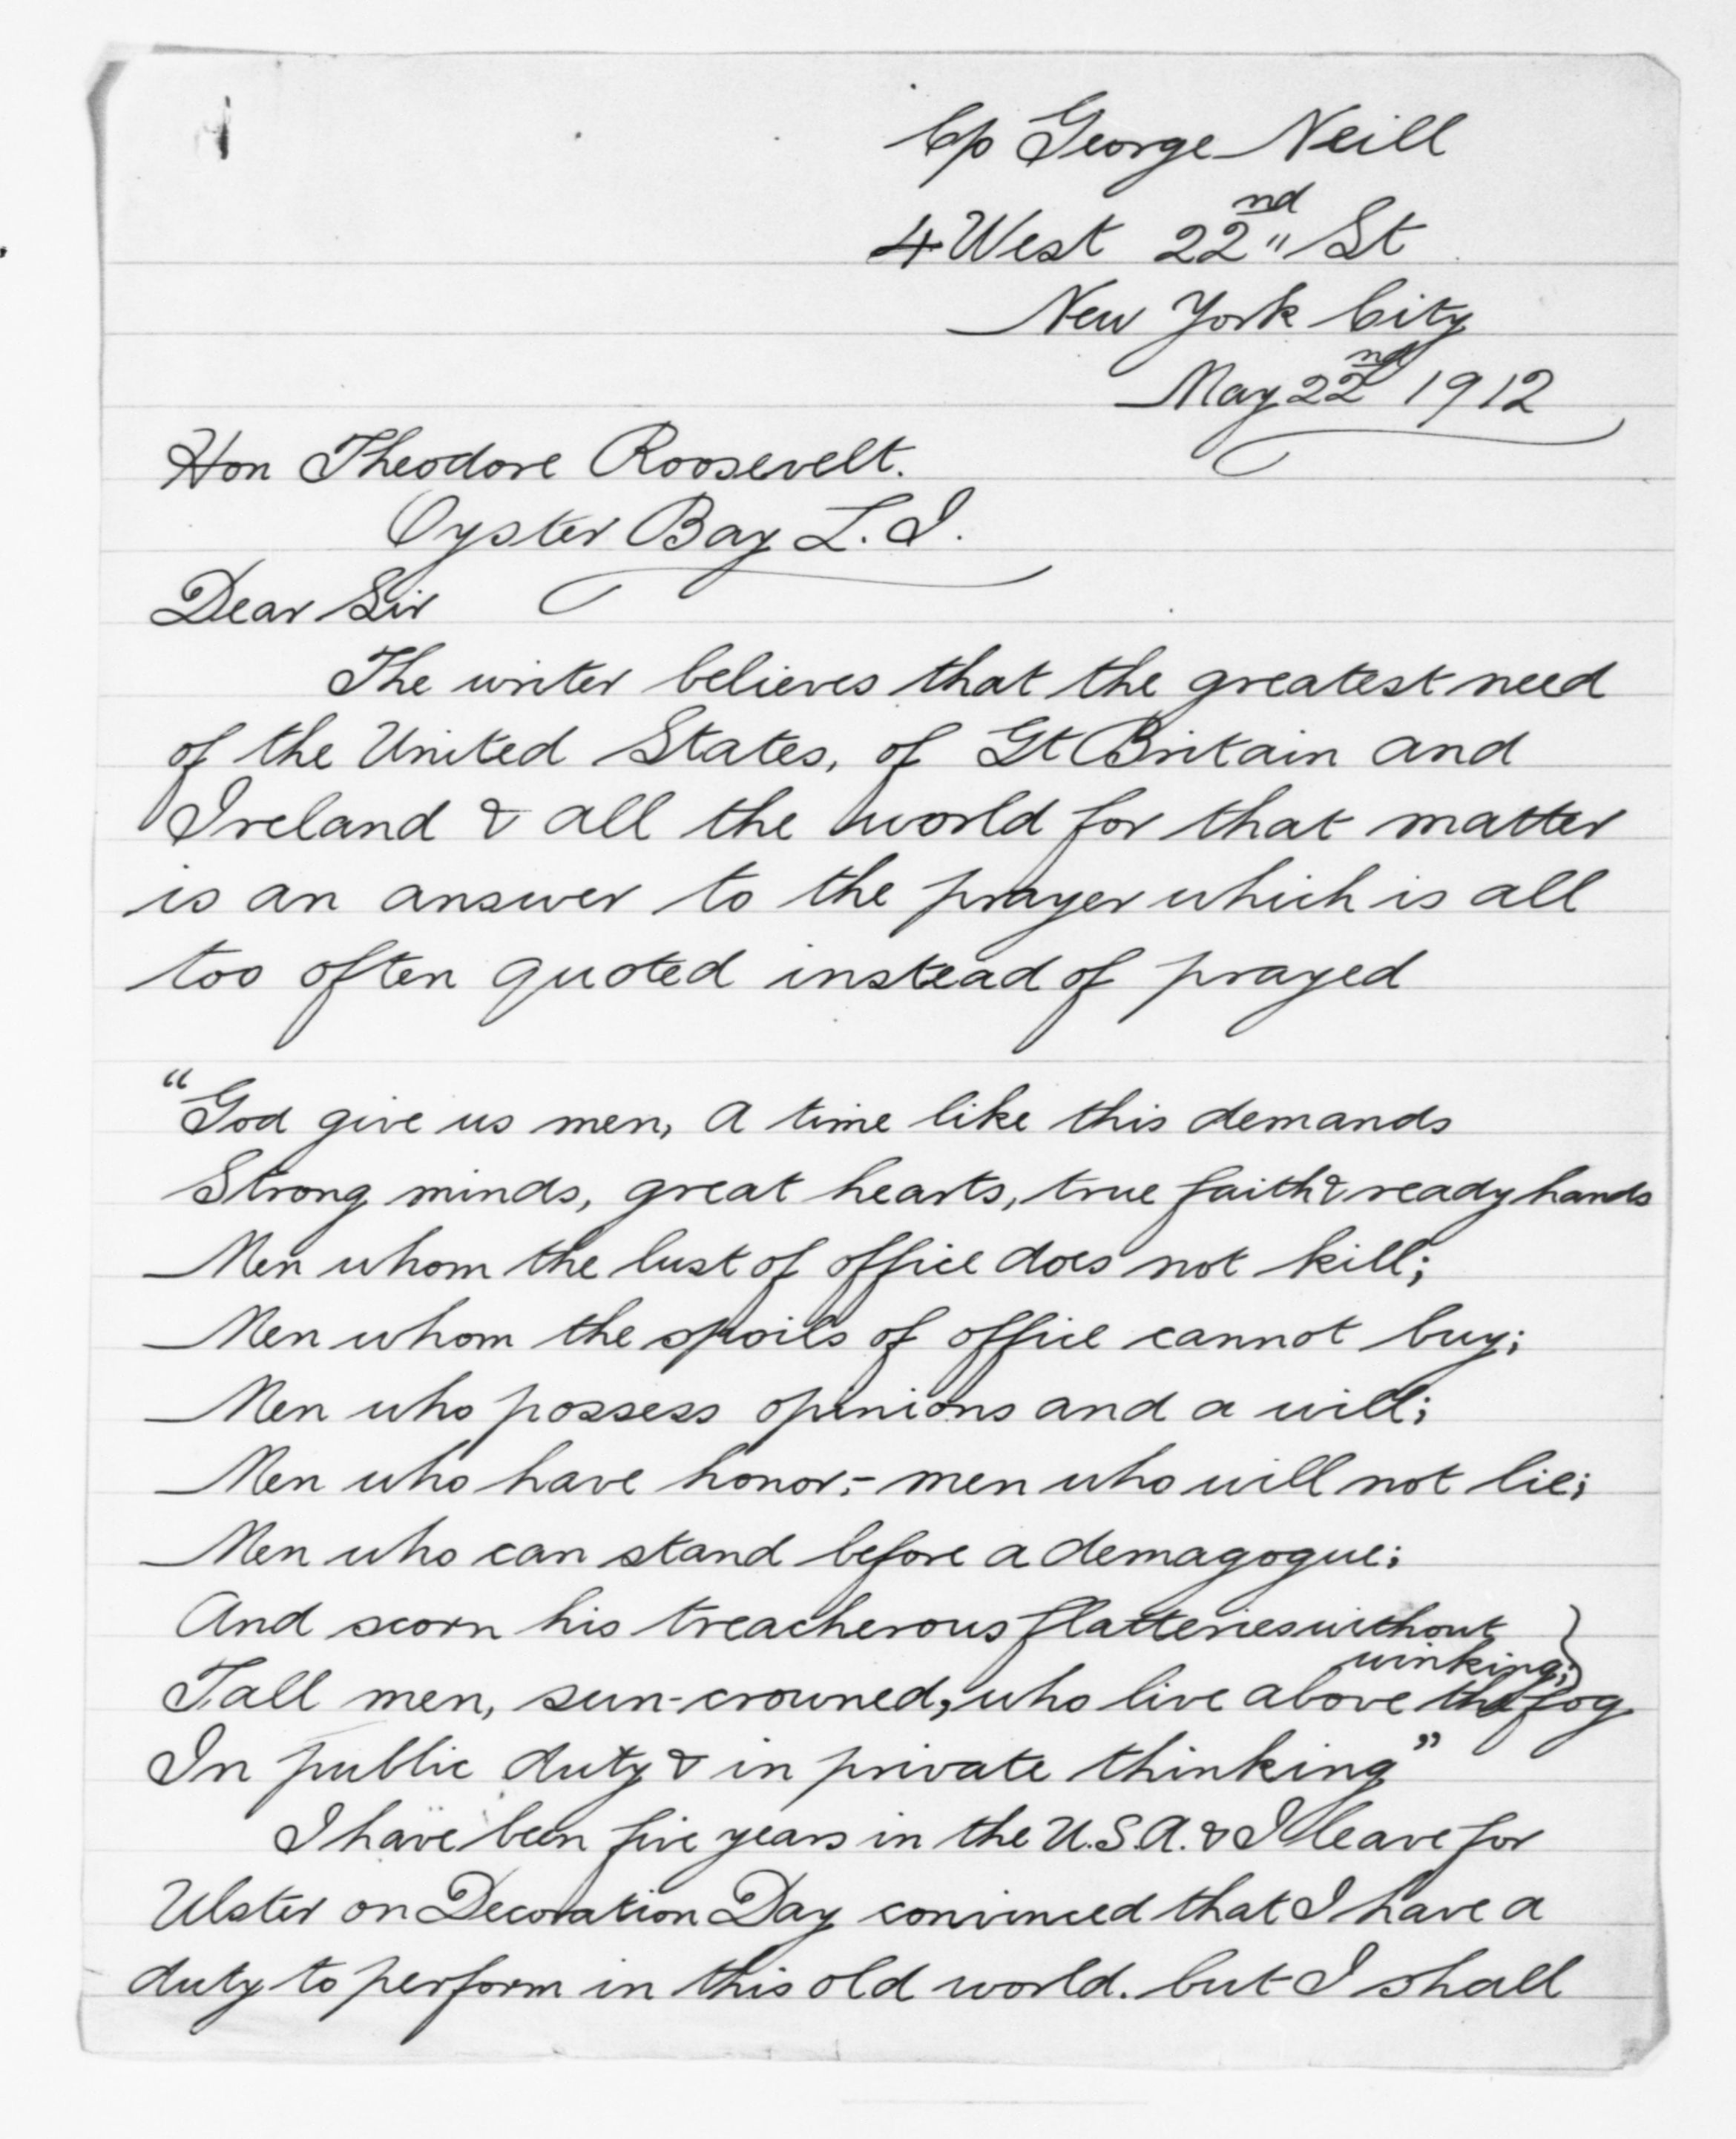 C/o George Neill
4 West 22nd St
New York City
May 22nd 1912
Hon Theodore Roosevelt.
Oyster Bay L. I.
Dear Sir
The writer believes that the greatest need
of the United States, of Gt Britain and
Ireland & all the world for that matter
is an answer to the prayer which is all
too often quoted instead of prayed
"God give us men, A time like this demands
Strong minds, great hearts, true faith & ready hands
Men whom the lust of office does not kill;
Men whom the spoils of office cannot buy;
Men who possess opinions and a will;
Men who have honor;- men who will not lie;
Men who can stand before a demagogue;
And scorn his treacherous flatteries without
winking;
Tall men, sun-crowned, who live above the fog
In public duty & in private thinking"
I have been five years in the U.S.A. & I leave for
Ulster on Decoration Day convinced that I have a
duty to perform in this old world. but I shall